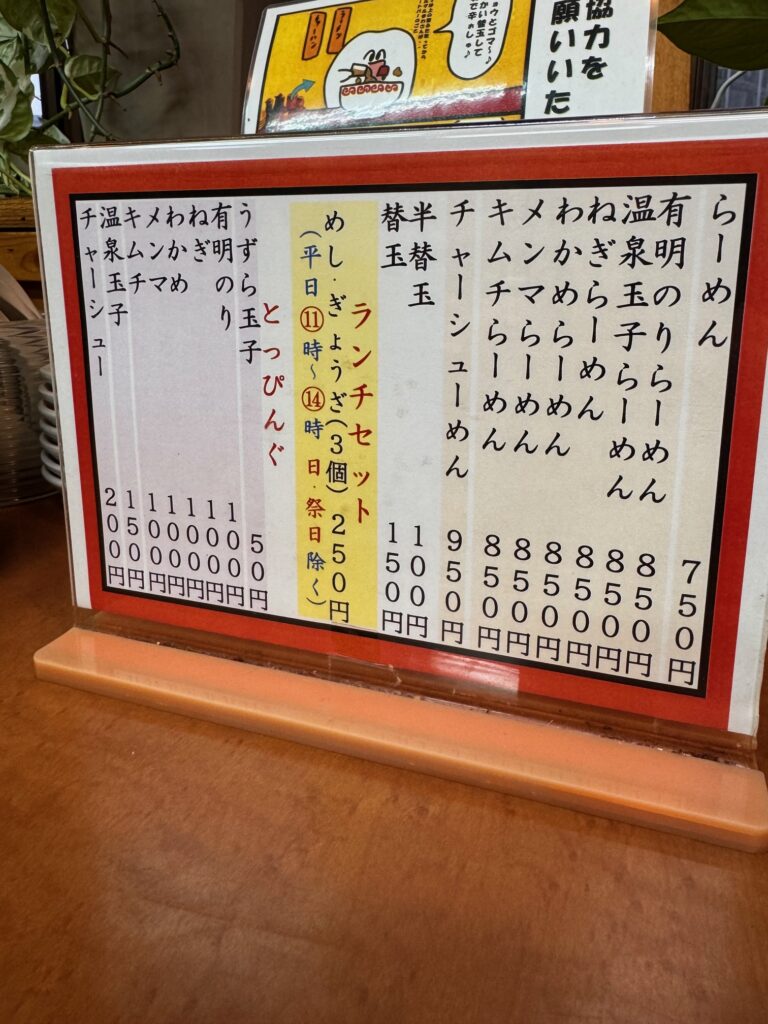 協力を
願いいた
ョウとゴマ～♪
かい替玉して
らーめん 750円
有明のりらーめん 850円
温泉玉子らーめん 850円
ねぎらーめん 850円
わかめらーめん 850円
メンマらーめん 850円
キムチらーめん 850円
チャーシューめん 950円
半替玉 100円
替玉 150円
ランチセット
めし・ぎょうざ(3個) 250円
(平日⑪時～⑭時 日・祭日除く)
とっぴんぐ
うずら玉子 50円
有明のり 100円
ねぎ 100円
わかめ 100円
メンマ 100円
キムチ 100円
温泉玉子 150円
チャーシュー 200円